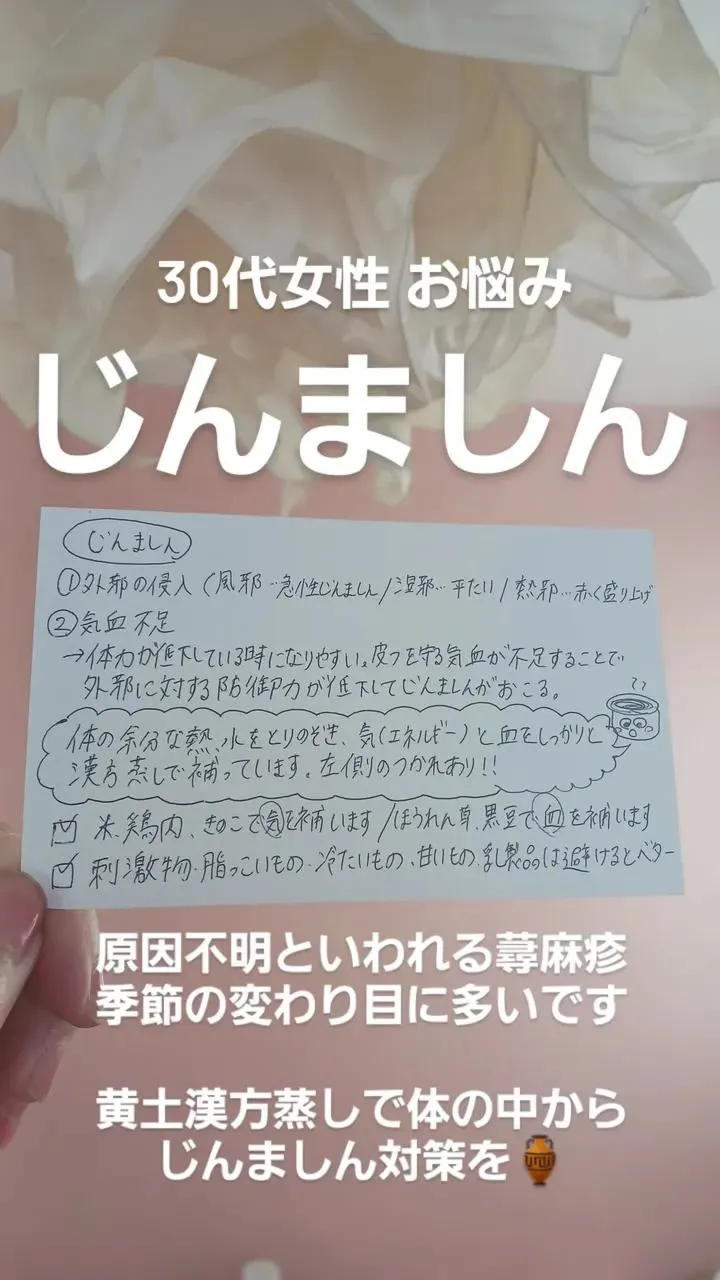 30代女性 お悩み
じんましん
じんましん
①外邪の侵入(風邪…急性じんましん/湿邪…平たい/熱邪…赤く盛り上げ
②気血不足
→体力が低下している時になりやすい。皮フを守る気血が不足することで
外邪に対する防御力が低下してじんましんがおこる。
体の余分な熱、水をとりのぞき、気(エネルギー)と血をしっかりと
漢方蒸しで補っています。左側のつかれあり!!
☑ 米、鶏肉、きのこで気を補います/ほうれん草、黒豆で血を補います
☑ 刺激物・脂っこいもの・冷たいもの・甘いもの、乳製品は避けるとベター
原因不明といわれる蕁麻疹
季節の変わり目に多いです
黄土漢方蒸しで体の中から
じんましん対策を🏺